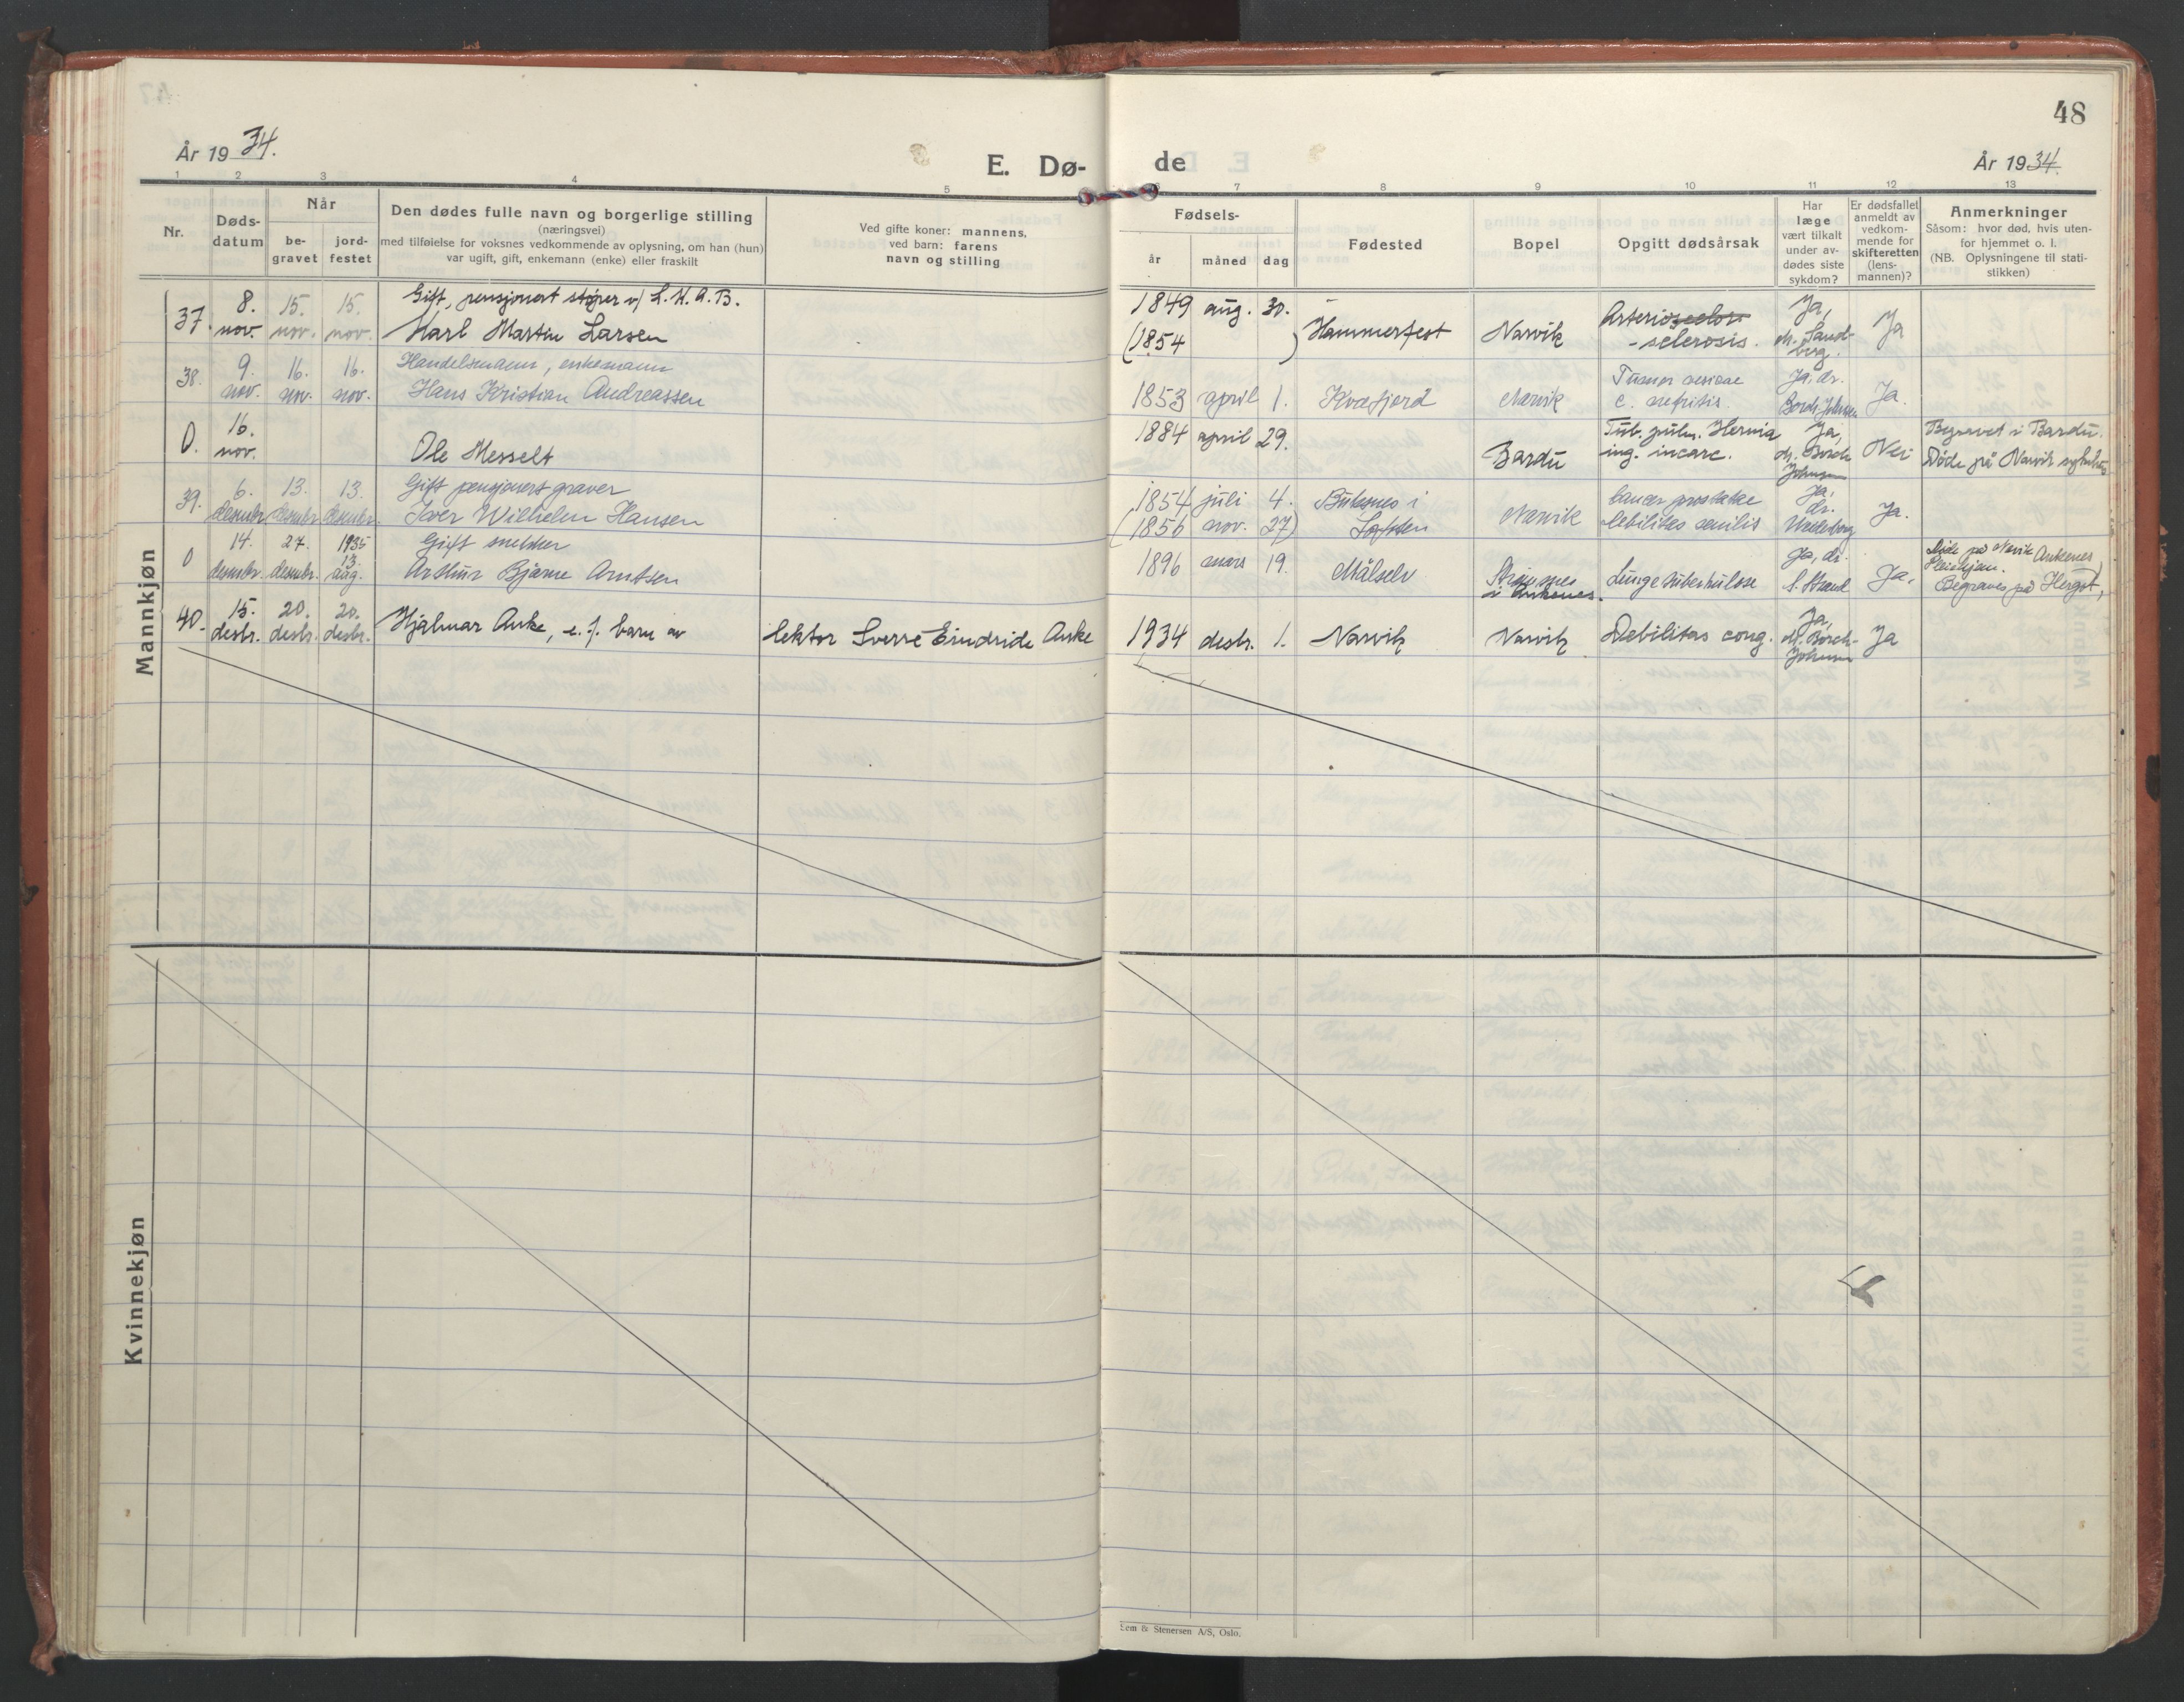 48
År 1934.
E. Dø-
de
År 1934.
1 2 3 4 5 6 7 8 9 10 11 12 13
Nr.
Døds-
datum
Når
be-
gravet
jord-
festet
Den dødes fulle navn og borgerlige stilling
(næringsvei)
med tilføielse for voksnes vedkommende av oplysning, om han (hun)
var ugift, gift, enkemann (enke) eller fraskilt
Ved gifte koner: mannens,
ved barn: farens
navn og stilling
Fødsels-
år
måned
dag
Fødested
Bopel
Opgitt dødsårsak
Har
læge
vært tilkalt
under av-
dødes siste
sykdom?
Er dødsfallet
anmeldt av
vedkom-
mende for
skifteretten
(lens-
mannen)?
Anmerkninger
Såsom: hvor død, hvis uten-
for hjemmet o. l.
(NB. Oplysningene til stati-
stikken)
Mannkjøn
37. 8. nov. 15. nov. 15. nov.
Gift, pensjonert støper v/ L.K.A.B.
Karl Martin Larsen
1849 aug. 30.
(1854 )
Hammerfest
Narvik
Arterioscelor-
-sclerosis.
Ja,
dr. Sand-
berg.
Ja
38. 9. nov. 16. nov. 16. nov.
Handelsmann, enkemann
Hans Kristian Andreassen
1853 april 1.
Kvæfjord
Narvik
Tumor vesicae
c. nefritis.
Ja, dr.
Borch Johnsen
Ja.
0. 16. nov.
Ole Messelt
1884 april 29.
Bardu
Tub. pulm. Hernia
ing. incarc.
Ja,
dr. Borch
Johnsen
Nei
Begravet i Bardu.
Døde på Narvik sykehus
39. 6. desember 13. desember 13. desember.
Gift pensjonert graver
Iver Wilhelm Hansen
1854 juli 4.
(1856 nov. 27)
Buksnes i
Lofoten
Narvik
Cancer prostatae
Debilitas senilis
Ja,
dr.
Ja.
0 14. desember. 27. desember. 1935 13. aug.
Gift snekker
Arthur Bjarne Arntsen
1896 mars 19.
Målselv
i Ankenes.
Lungetuberkulose
Ja, dr.
S. Strand
Ja.
Døde på Narvik
Ankenes
Begraves på
40. 15. desbr. 20. desbr. 20. desbr.
Hjalmar Anke, e. f. barn av
lektor Sverre Eindride Anke
1934 desbr. 1.
Narvik
Narvik
Debilitas cong.
Ja,
dr. Borch-
Johnsen
Ja
Kvinnekjøn
Sem & Stenersen A/S, Oslo.